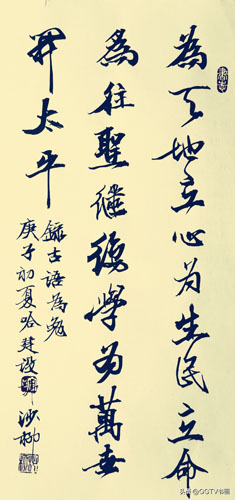 為天地立心为生民立命
為往聖繼絕學为萬世
开太平
錄古語為勉
庚子初夏哈建設
沙柳
头条 @CCTV书画